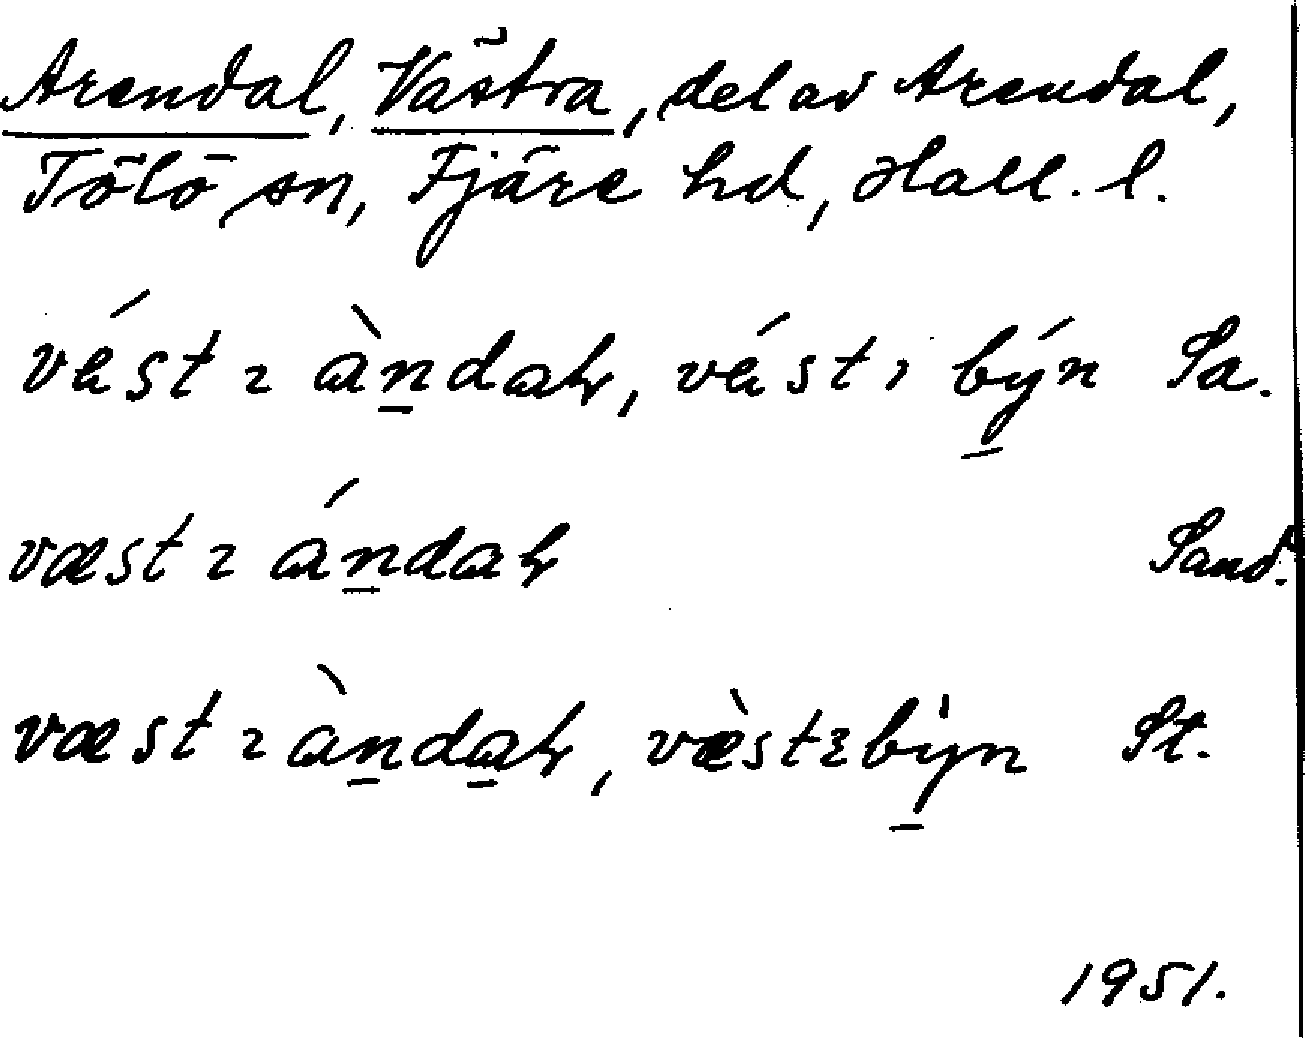 Arendal, Västra, del av Arendal,
Tölö sn, Fjäre hd, Hall. l.
vást ꝛ àndaɫ, vást ꝛ býn Sa.
væst ꝛ ándaɫ Sand.
væst ꝛ àndaɫ, væ̀stꝛbỳn St.
1951.